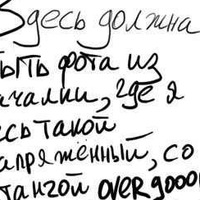 Здесь должна
быть фота из
качалки, где я
весь такой
напряжённый, со
штангой over 9000